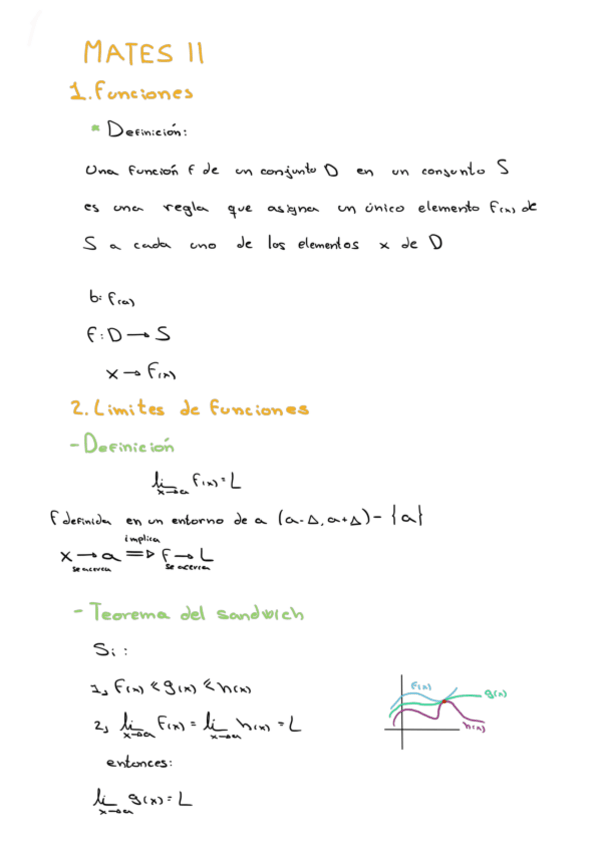 MATES II
1. Funciones
* Definición:
Una función f de un conjunto D en un conjunto S
es una regla que asigna un único elemento f(x) de
S a cada uno de los elementos x de D
b: f(a)
f: D → S
x → f(x)
2. Limites de funciones
- Definición
lim x→a f(x) = L
f definida en un entorno de a (a-Δ, a+Δ) - {a}
implica
x → a ⇒ f → L
se acerca se acerca
- Teorema del sandwich
Si:
1, f(x) ≤ g(x) ≤ h(x)
f(x)
g(x)
2, lim x→a f(x) = lim x→a h(x) = L
h(x)
entonces:
lim x→a g(x) = L